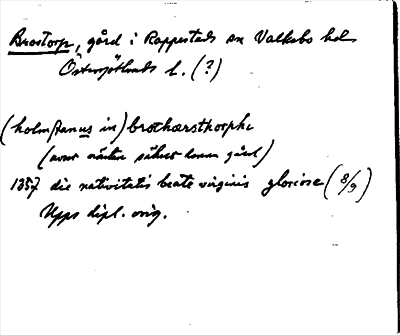 Brostorp, gård i Rappestads sn Valkebo hd
Östergötlands l. (?)
(holmstanus in) brothærsthorphe
(avser säker denna gård)
1357 die nativitatis beate virginis gloriose (8/9)
Upps dipl. orig.